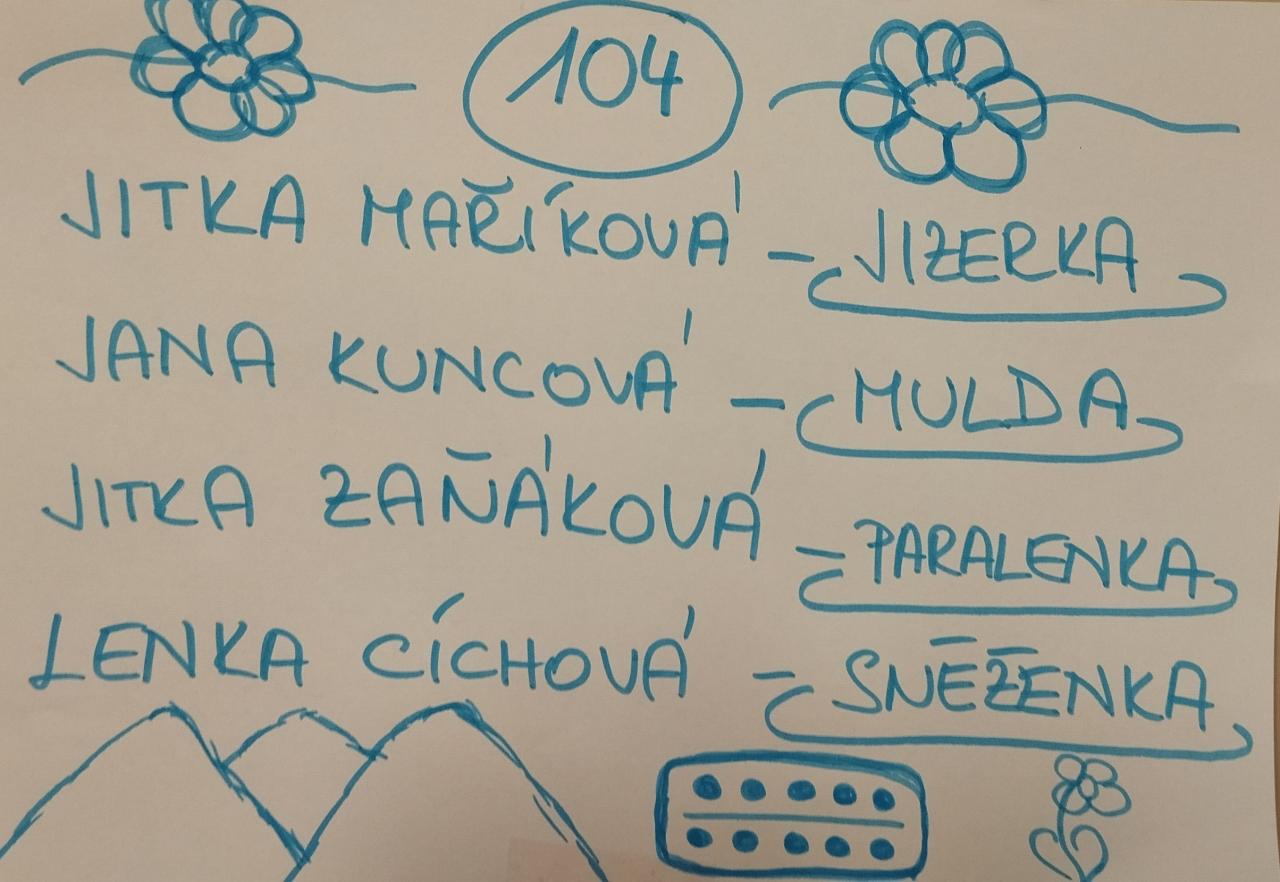 104
JITKA MAŘÍKOVÁ - JIZERKA
JANA KUNCOVÁ - MULDA
JITKA ZAŇÁKOVÁ - PARALENKA
LENKA CÍCHOVÁ - SNĚŽENKA